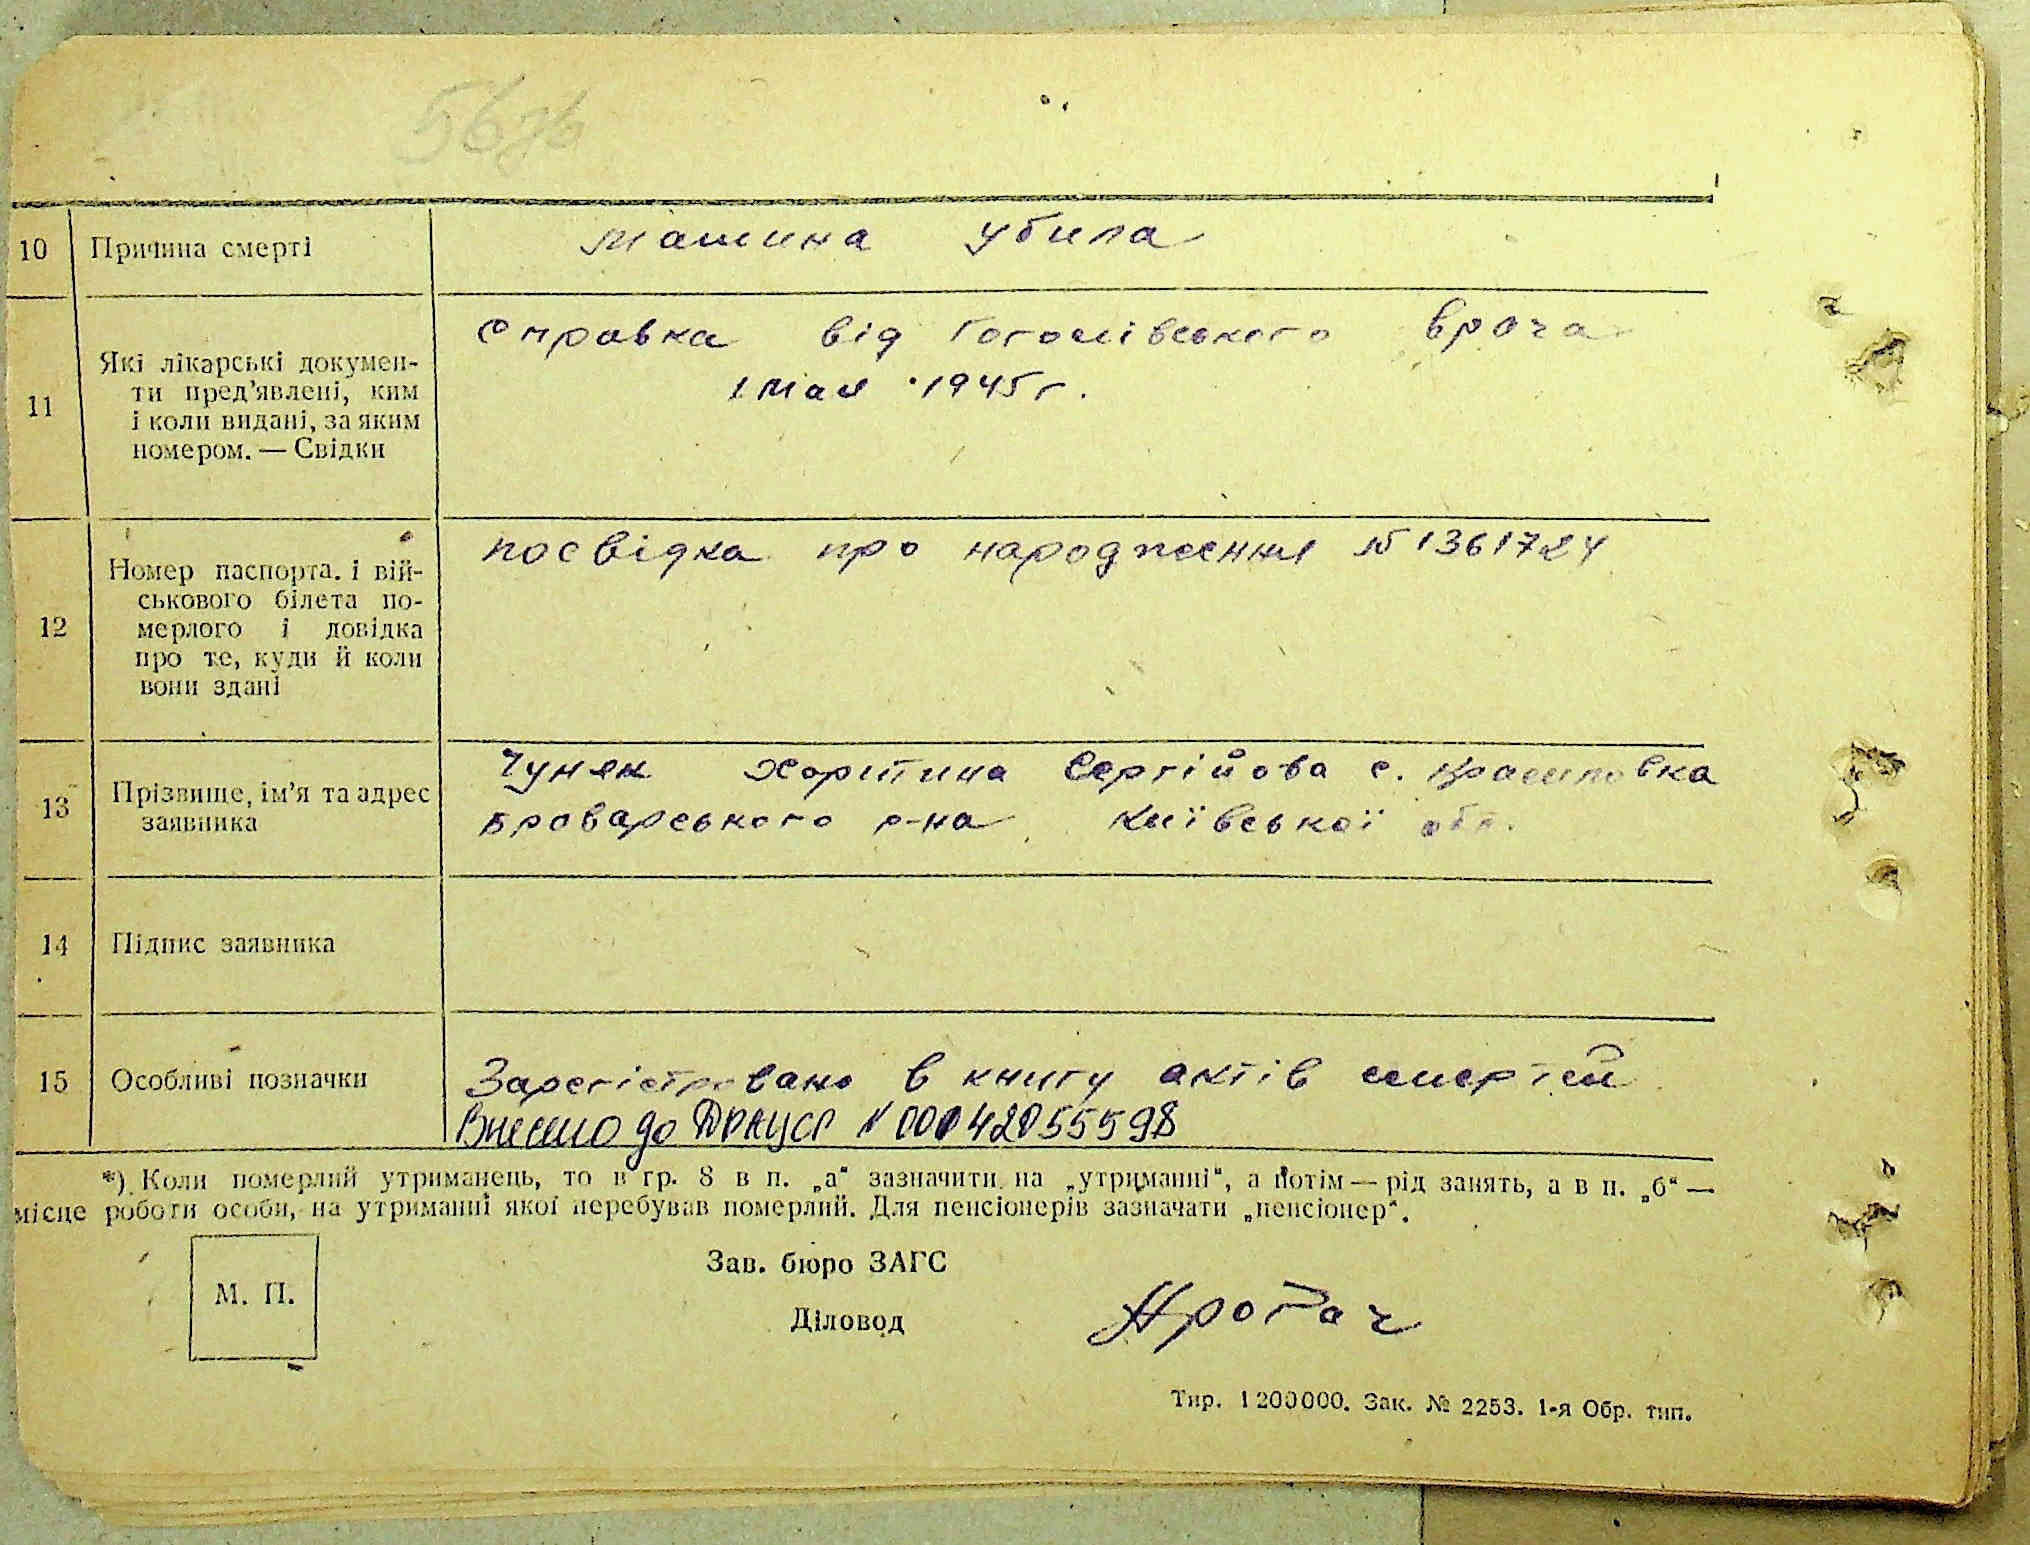 10 Причина смерті машина убила
11 Які лікарські докумен-
ти пред'явлені, ким
і коли видані, за яким
номером. — Свідки
Справка від Гоголівського врача
1 мая 1945 г.
12 Номер паспорта. і вій-
ськового білета по-
мерлого і довідка
про те, куди й коли
вони здані
посвідка про народження № 1361724
13 Прізвище, ім'я та адрес
заявника
Чуняк Харитина Сергійова с. Красиловка
Броварського р-на Київської обл.
14 Підпис заявника
15 Особливі позначки
Зарегістровано в книгу актів смертей
Внесено до ДРАЦСГ № 00042055598
*) Коли померлий утриманець, то в гр. 8 в п. „а“ зазначити на „утриманні“, а потім — рід занять, а в п. „б“ —
місце роботи особи, на утриманні якої перебував померлий. Для пенсіонерів зазначати „пенсіонер“.
М. П.
Зав. бюро ЗАГС
Діловод
Тир. 1200000. Зак. № 2253. 1-я Обр. тип.